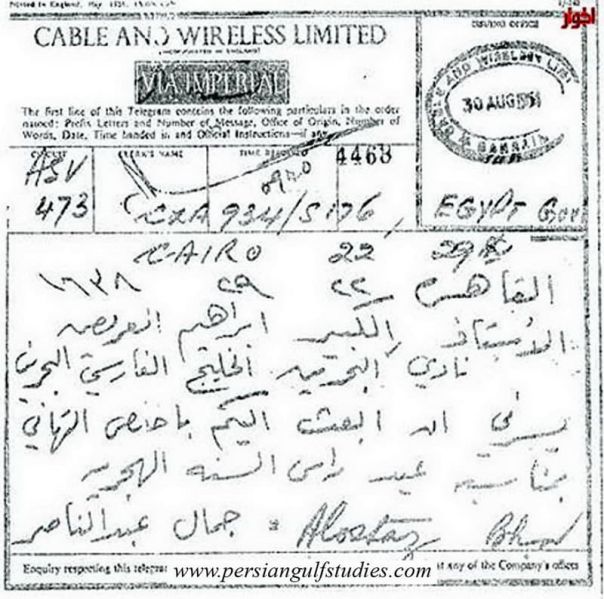 اخبار
CABLE AND WIRELESS LIMITED
(INCORPORATED IN ENGLAND)
VIA IMPERIAL
The first line of this Telegram contains the following particulars in the order
named: Prefix Letters and Number of Message, Office of Origin, Number of
Words, Date, Time handed in and Official Instructions—if any.
ISSUING OFFICE
CABLE AND WIRELESS LTD
30 AUG 195
BAHRAIN
CIRCUIT
CLERK'S NAME
TIME RECEIVED
4463
ASV
473
0920
CXA 934/S176
EGYPT GOV
CAIRO 22 29
القاهرة ٢٢ ٢٩ ١٦٣٨
الأستاذ الكبير ابراهيم العريض
نادي البحرين الخليج الفارسي البحرين
يسرني ان ابعث اليكم باخلص التهاني
بمناسبة عيد راس السنه الهجريه
جمال عبدالناصر
Alostaz
Enquiry respecting this telegram
at any of the Company's offices
www.persiangulfstudies.com